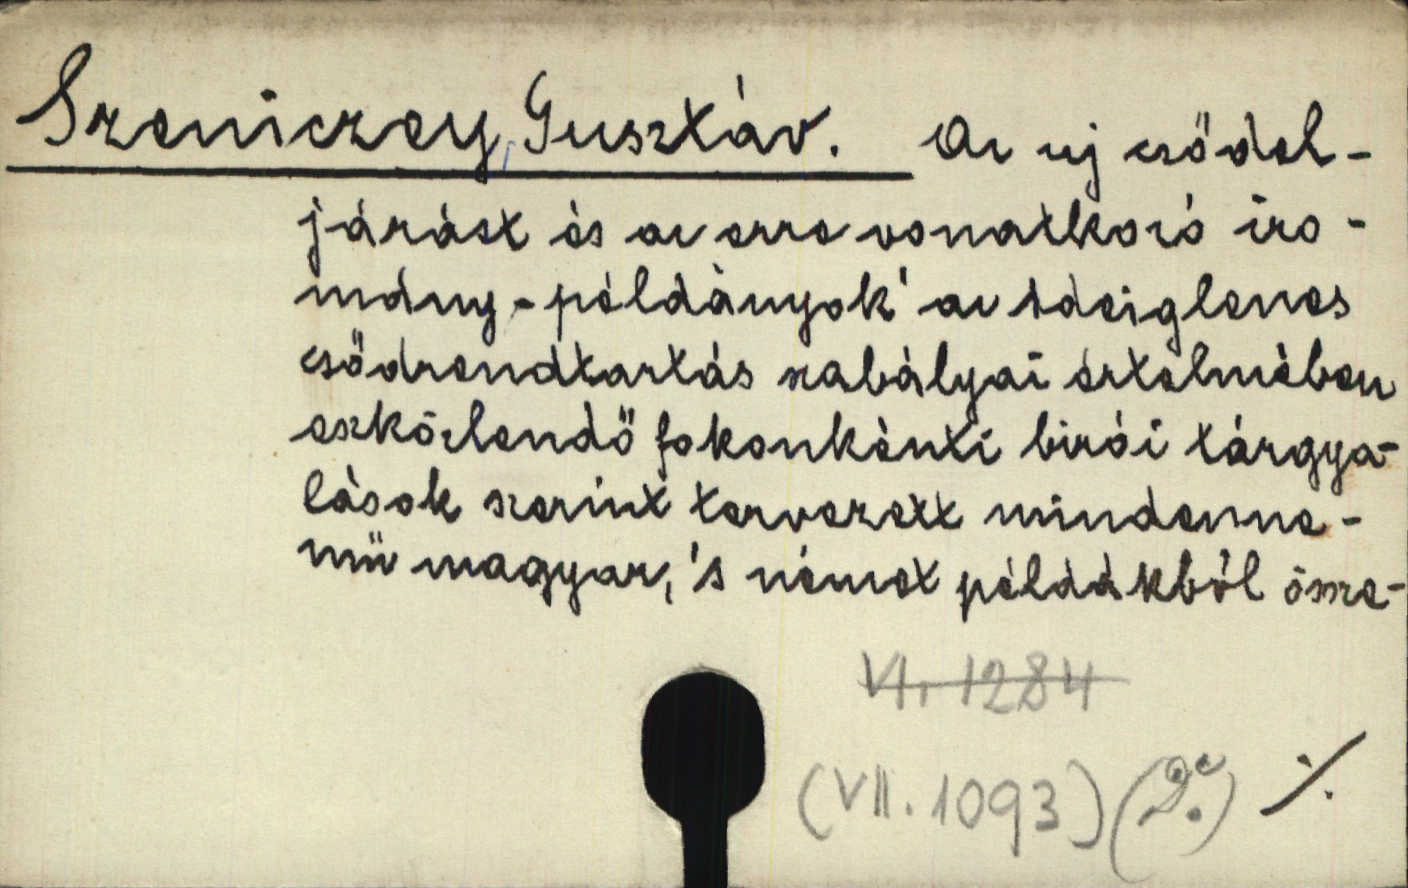 Szeniczey, Gusztáv. Az uj csődel-
járást és az erre vonatkozó iro-
mány-példányok' az ideiglenes
csődrendtartás szabályai értelmében
eszközlendő fokonkénti birói tárgya-
lások szerint tervezett mindenne-
mű magyar, 's német példákból össze-
VI. 1284
(VII. 1093) (2°.) ./.